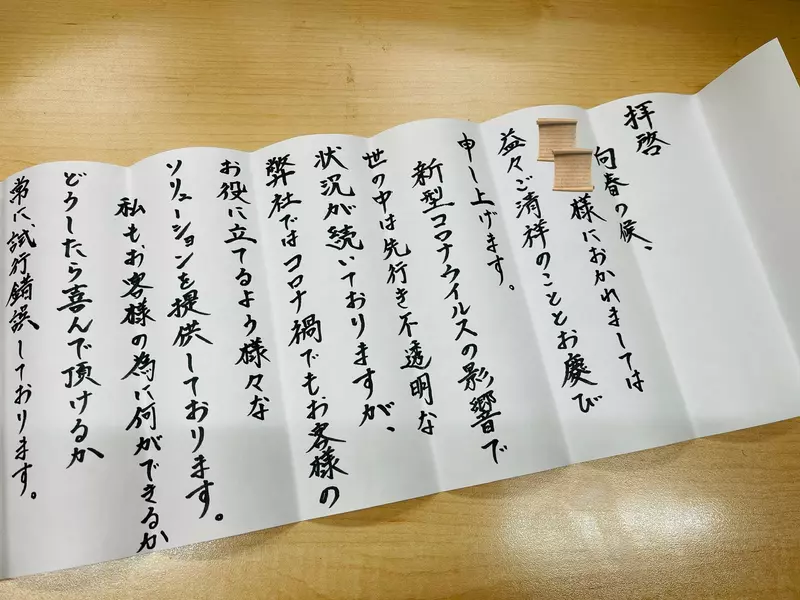 拝啓
向春の候、
様におかれましては
益々ご清祥のこととお慶び
申し上げます。
新型コロナウイルスの影響で
世の中は先行き不透明な
状況が続いておりますが、
弊社ではコロナ禍でもお客様の
お役に立てるよう様々な
ソリューションを提供しております。
私もお客様の為に何ができるか
どうしたら喜んで頂けるか
常に、試行錯誤しております。